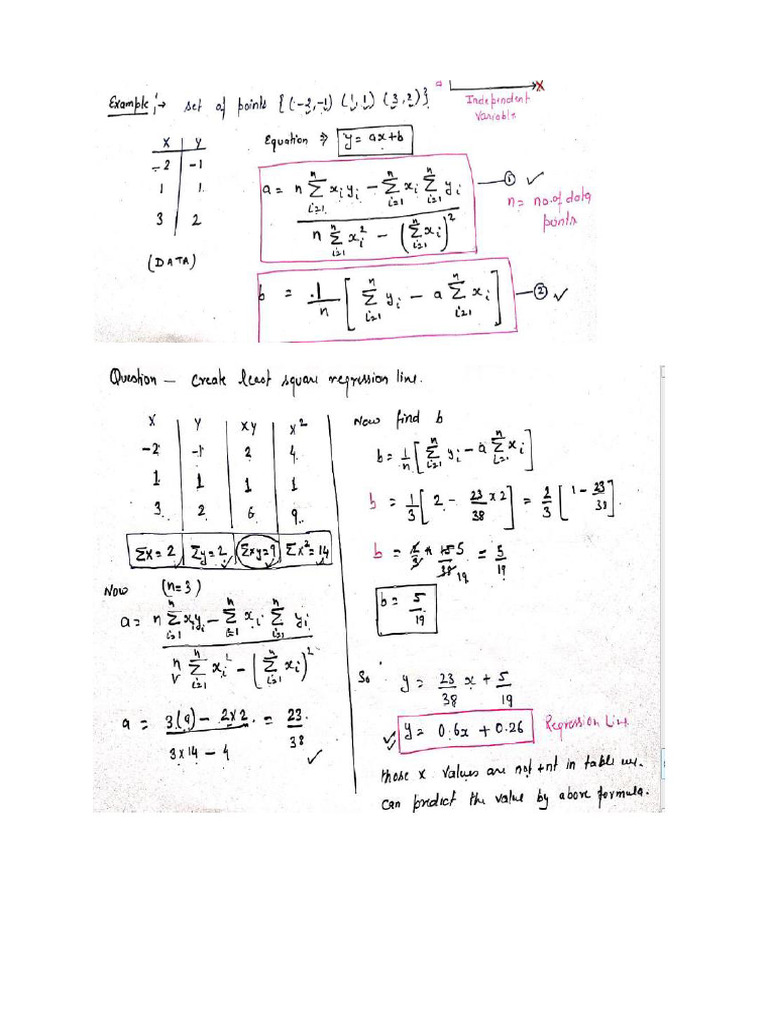 Example :→ set of points {(-2,-1) (1,1) (3,2)}
a X
Independent
Variable
X Y
-2 -1
1 1
3 2
(DATA)
Equation ⇒ y = ax+b
a = n Σ_{i=1}^{n} x_i y_i − Σ_{i=1}^{n} x_i Σ_{i=1}^{n} y_i — ① ✓
n Σ_{i=1}^{n} x_i^2 − (Σ_{i=1}^{n} x_i)^2
n = no. of data
points
b = 1/n [Σ_{i=1}^{n} y_i − a Σ_{i=1}^{n} x_i] — ② ✓
Question — Create least square regression line.
X Y XY X^2
-2 -1 2 4
1 1 1 1
3 2 6 9
Σx=2 Σy=2 Σxy=9 Σx^2=14
Now (n=3)
a = n Σ_{i=1}^{n} x_i y_i − Σ_{i=1}^{n} x_i Σ_{i=1}^{n} y_i
n Σ_{i=1}^{n} x_i^2 − (Σ_{i=1}^{n} x_i)^2
a = 3(9) − 2×2 = 23
3×14 − 4 38 ✓
Now find b
b = 1/n [Σ_{i=1}^{n} y_i − a Σ_{i=1}^{n} x_i]
b = 1/3 [2 − 23/38 ×2] = 2/3 [1 − 23/38].
b = 2/3 × 15 5/38 19 = 5/19
b = 5/19
So y = 23/38 x + 5/19
y = 0.6x + 0.26 Regression Line
those x values are not +nt in table we.
can predict the value by above formula.